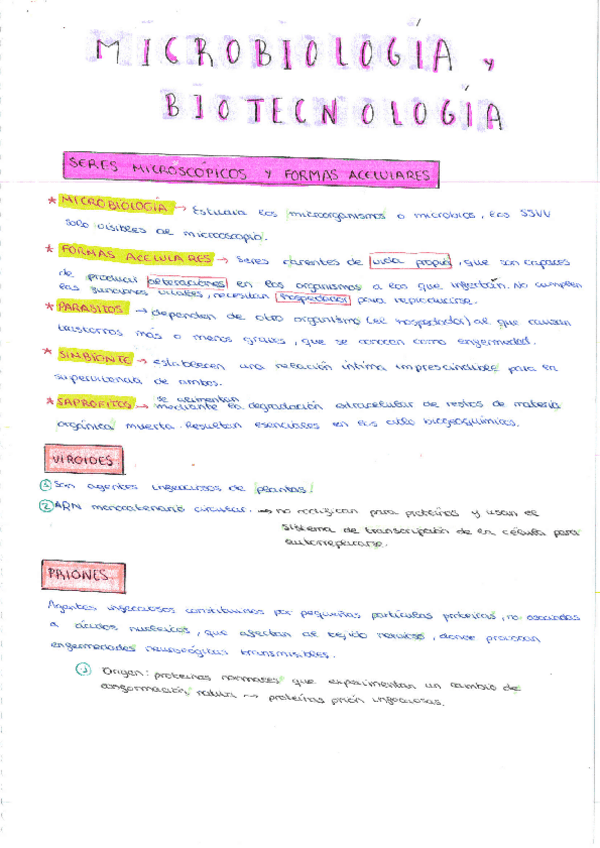 MICROBIOLOGÍA y
BIOTECNOLOGÍA
SERES MICROSCÓPICOS Y FORMAS ACELULARES
* MICROBIOLOGÍA → Estudia los microorganismos o microbios, los SSVV
solo visibles al microscopio.
* FORMAS ACELULARES → Seres carentes de vida propia, que son capaces
de producir alteraciones en los organismos a los que infectan. No cumplen
las funciones vitales, necesitan hospedador para reproducirse.
* PARÁSITOS → dependen de otro organismo (el hospedador) al que causan
trastornos más o menos graves, que se conocen como enfermedad.
* SIMBIONTE → establecen una relación íntima imprescindible para la
supervivencia de ambos.
* SAPROFITOS → se alimentan mediante la degradación extracelular de restos de materia
orgánica muerta. Resultan esenciales en los ciclo biogeoquímicos.
VIROIDES
① Son agentes infecciosos de plantas.
② ARN monocatenario circular. → no codifican para proteínas y usan el
sistema de transcripción de la célula para
autorreplicarse.
PRIONES
Agentes infecciosos constituidos por pequeñas partículas proteicas, no asociadas
a ácidos nucleicos, que afectan al tejido nervioso, donde provocan
enfermedades neurológicas transmisibles.
Origen: proteínas normales que experimentan un cambio de
conformación → proteínas prión infecciosas.